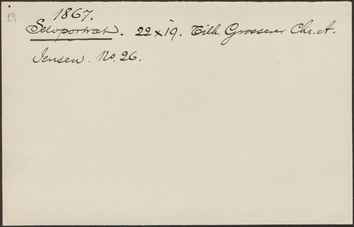 1867.
Selvportræt. 22 x 19. Tilh. Grosserer Chr. A.
Jensen. No. 26.